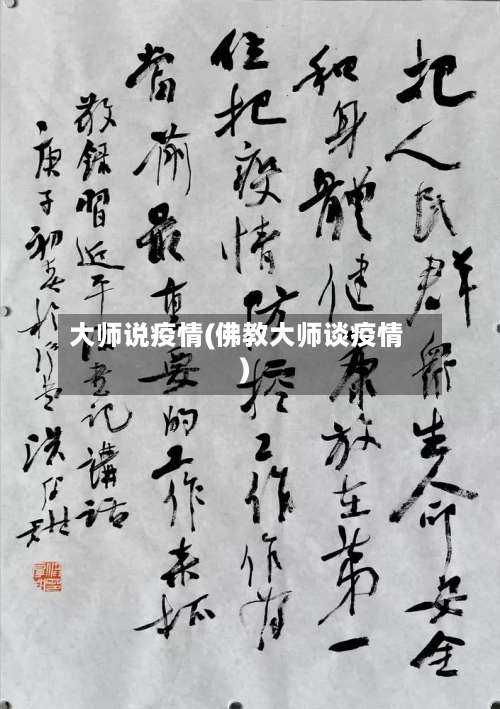 把人民群衆生命安全
和身體健康放在第一
位把疫情防控工作作为
當前最重要的工作来抓
敬録習近平总書记講話
庚子初春於
洪
大师说疫情(佛教大师谈疫情
)